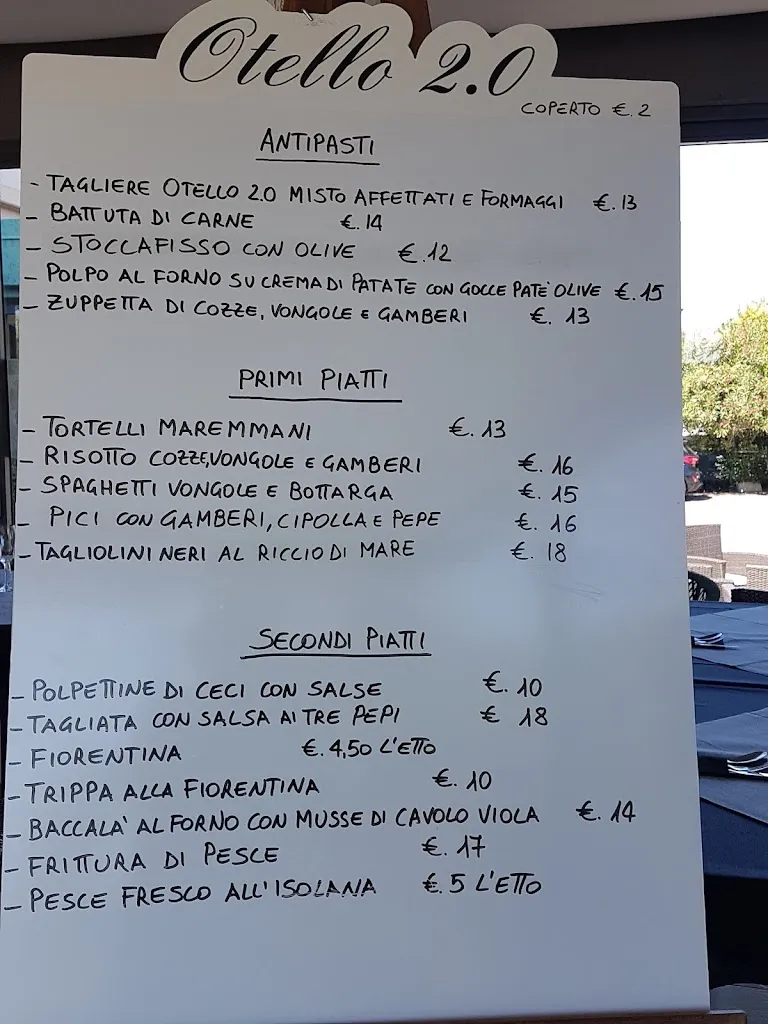 Otello 2.0
COPERTO €. 2
ANTIPASTI
- TAGLIERE OTELLO 2.0 MISTO AFFETTATI E FORMAGGI €. 13
- BATTUTA DI CARNE €. 14
- STOCCAFISSO CON OLIVE €. 12
- POLPO AL FORNO SU CREMA DI PATATE CON GOCCE PATE' OLIVE €. 15
- ZUPPETTA DI COZZE, VONGOLE E GAMBERI €. 13
PRIMI PIATTI
- TORTELLI MAREMMANI €. 13
- RISOTTO COZZE, VONGOLE E GAMBERI €. 16
- SPAGHETTI VONGOLE E BOTTARGA €. 15
- PICI CON GAMBERI, CIPOLLA E PEPE €. 16
- TAGLIOLINI NERI AL RICCIO DI MARE €. 18
SECONDI PIATTI
- POLPETTINE DI CECI CON SALSE €. 10
- TAGLIATA CON SALSA AI TRE PEPI € 18
- FIORENTINA €. 4,50 L'ETTO
- TRIPPA ALLA FIORENTINA €. 10
- BACCALA' AL FORNO CON MUSSE DI CAVOLO VIOLA €. 14
- FRITTURA DI PESCE €. 17
- PESCE FRESCO ALL'ISOLANA €. 5 L'ETTO